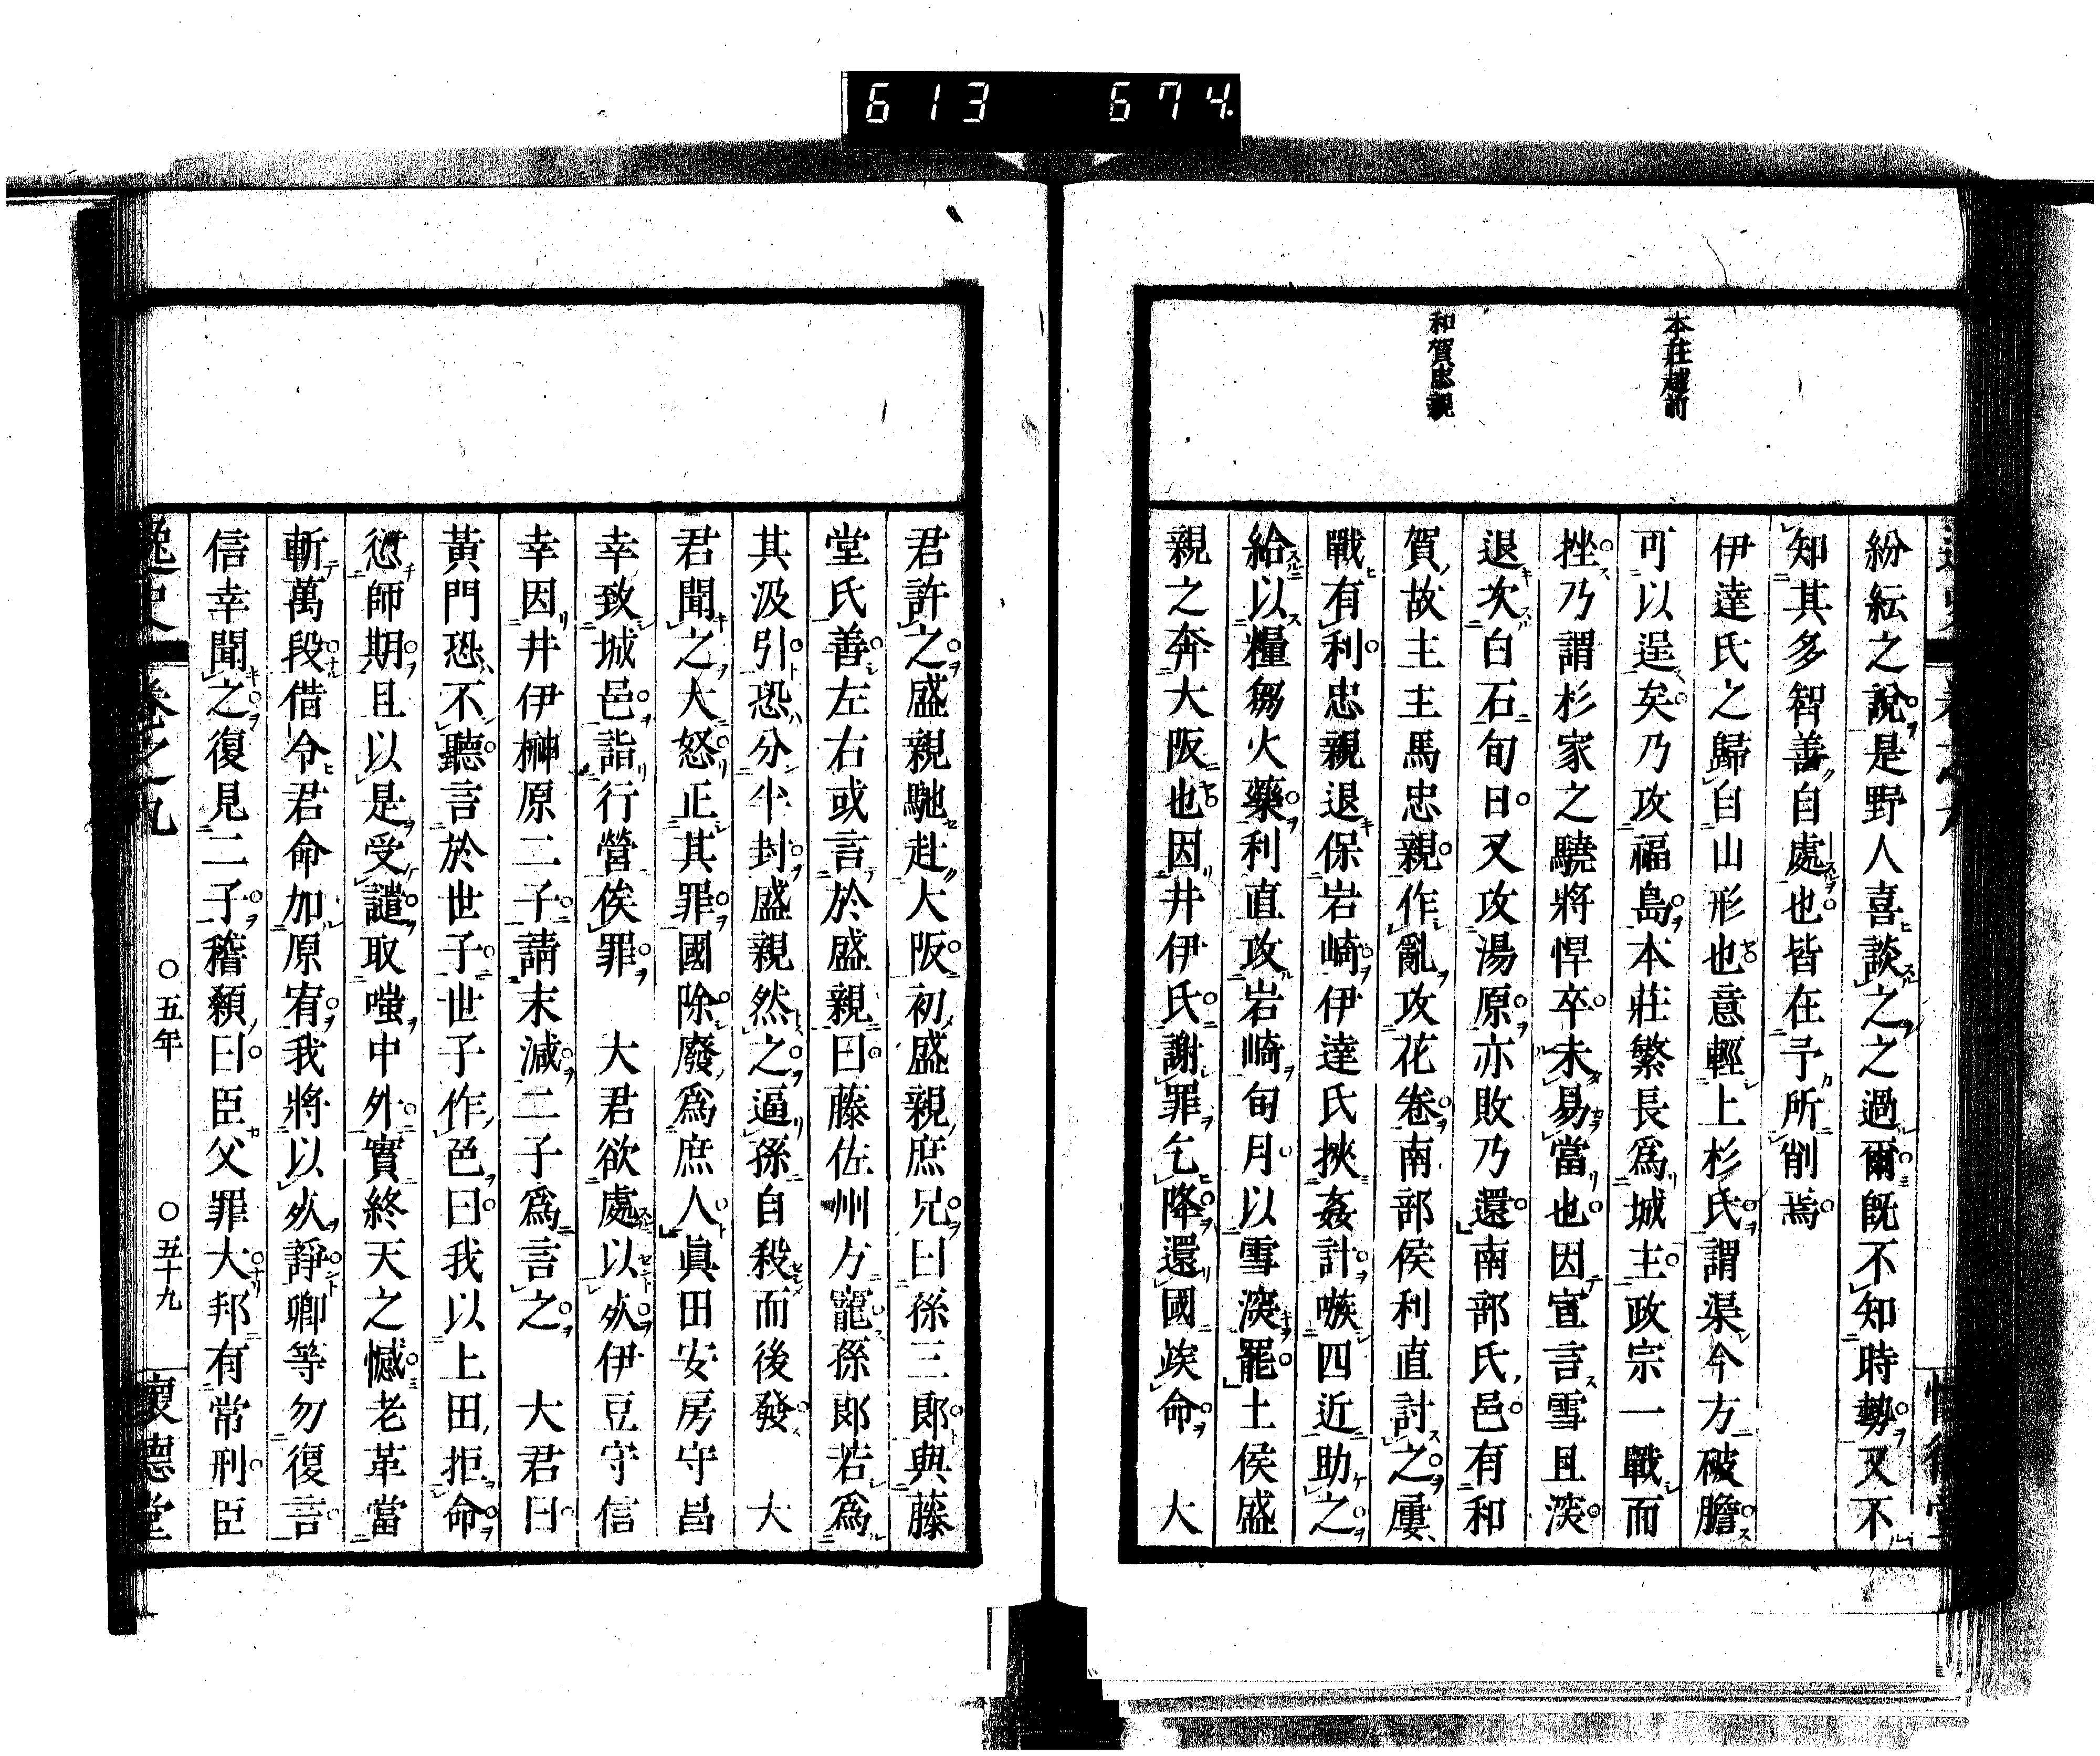 613 674
本莊越前
和賀忠親
紛紜之說是野人喜談之之過爾既不知時勢又不
知其多智善自處也皆在予所削焉
伊達氏之歸自山形也意輕上杉氏謂渠今方破膽
可以逞矣乃攻福島本莊繁長爲城主政宗一戰而
挫乃謂杉家之驍將悍卒未易當也因宣言雪且深
退次白石旬日又攻湯原亦敗乃還南部氏邑有和
賀故主主馬忠親作亂攻花卷南部侯利直討之屢
戰有利忠親退保岩崎伊達氏挾姦計嗾四近助之
給以糧芻火藥利直攻岩崎旬月以雪深罷土侯盛
親之奔大阪也因井伊氏謝罪乞降還國竢命 大
君許之盛親馳赴大阪初盛親庶兄曰孫三郞與藤
堂氏善左右或言於盛親曰藤佐州方寵孫郞若爲
其汲引恐分半封盛親然之逼孫自殺而後發 大
君聞之大怒正其罪國除廢爲庶人眞田安房守昌
幸致城邑詣行營俟罪 大君欲處以死伊豆守信
幸因井伊榊原二子請末減二子爲言之 大君曰
黃門恐不聽言於世子世子作色曰我以上田拒命
愆師期且以是受譴取嗤中外實終天之憾老革當
斬萬段借令君命加原宥我將以死諍卿等勿復言
信幸聞之復見二子稽顙曰臣父罪大邦有常刑臣
逸史 卷之九 〇五年 〇五十九 懷德堂